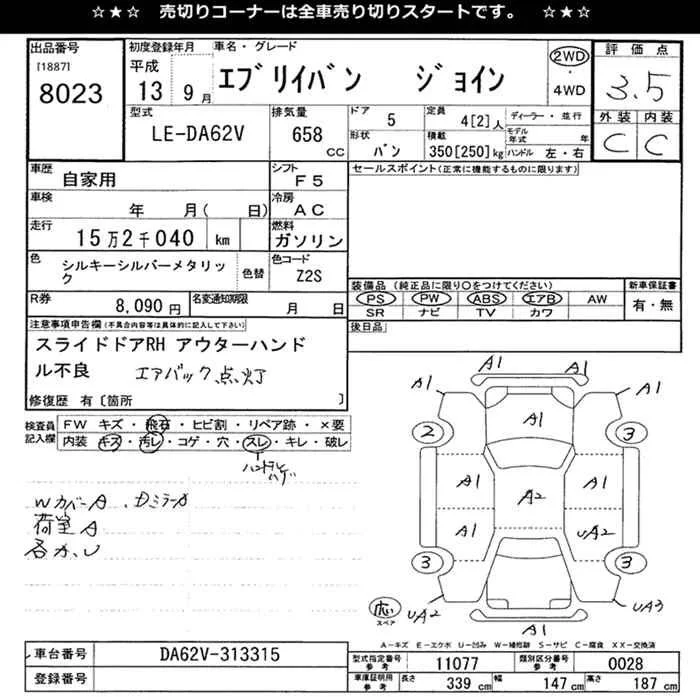 ☆★☆　売切りコーナーは全車売り切りスタートです。　☆★☆
出品番号
[1887]
8023
初度登録年月
平成
13 9月
車名・グレード
エブリイバン　ジョイン
2WD
・
4WD
評価点
3.5
外装 内装
C C
型式
LE-DA62V
排気量
658
CC
ドア
5
定員
4[2]人
ディーラー・並行
形状
バン
積載
350[250]kg
モデル年式 年
ハンドル 左・右
車歴
自家用
シフト
F5
セールスポイント(正常に機能するものに限ります)
車検
年 月( 日)
冷房
AC
走行
15万2千040 km
燃料
ガソリン
色
シルキーシルバーメタリック
色替
色コード
Z2S
装備品 (純正品に限り○をつけてください)
新車保証書
PS PW ABS エアB AW
有・無
SR ナビ TV カワ
R券
8,090円
名変通知期限
月 日
後日品
注意事項申告欄(不具合内容等は具体的に記入して下さい)
スライドドアRH アウターハンド
ル不良 エアバック点灯
修復歴 有〔箇所 〕
検査員記入欄
FW キズ・飛石・ヒビ割・リペア跡・×要
内装 キズ・汚レ・コゲ・穴・スレ・キレ・破レ
ハンドルハゲ
WカバーA、DミラーA
荷室A
各カ、U
A1
A1 A1
A1
2 3
A1 A1
A2
A1 UA2
3 3
UA2 UA3
A1
応
スペア
A-キズ E-エクボ U-凹み W-補修跡 S-サビ C-腐食 XX-交換済
車台番号
DA62V-313315
登録番号
型式指定番号参考
11077
類別区分番号参考
0028
車庫証明用参考
長さ 339 cm 幅 147 cm 高さ 187 cm